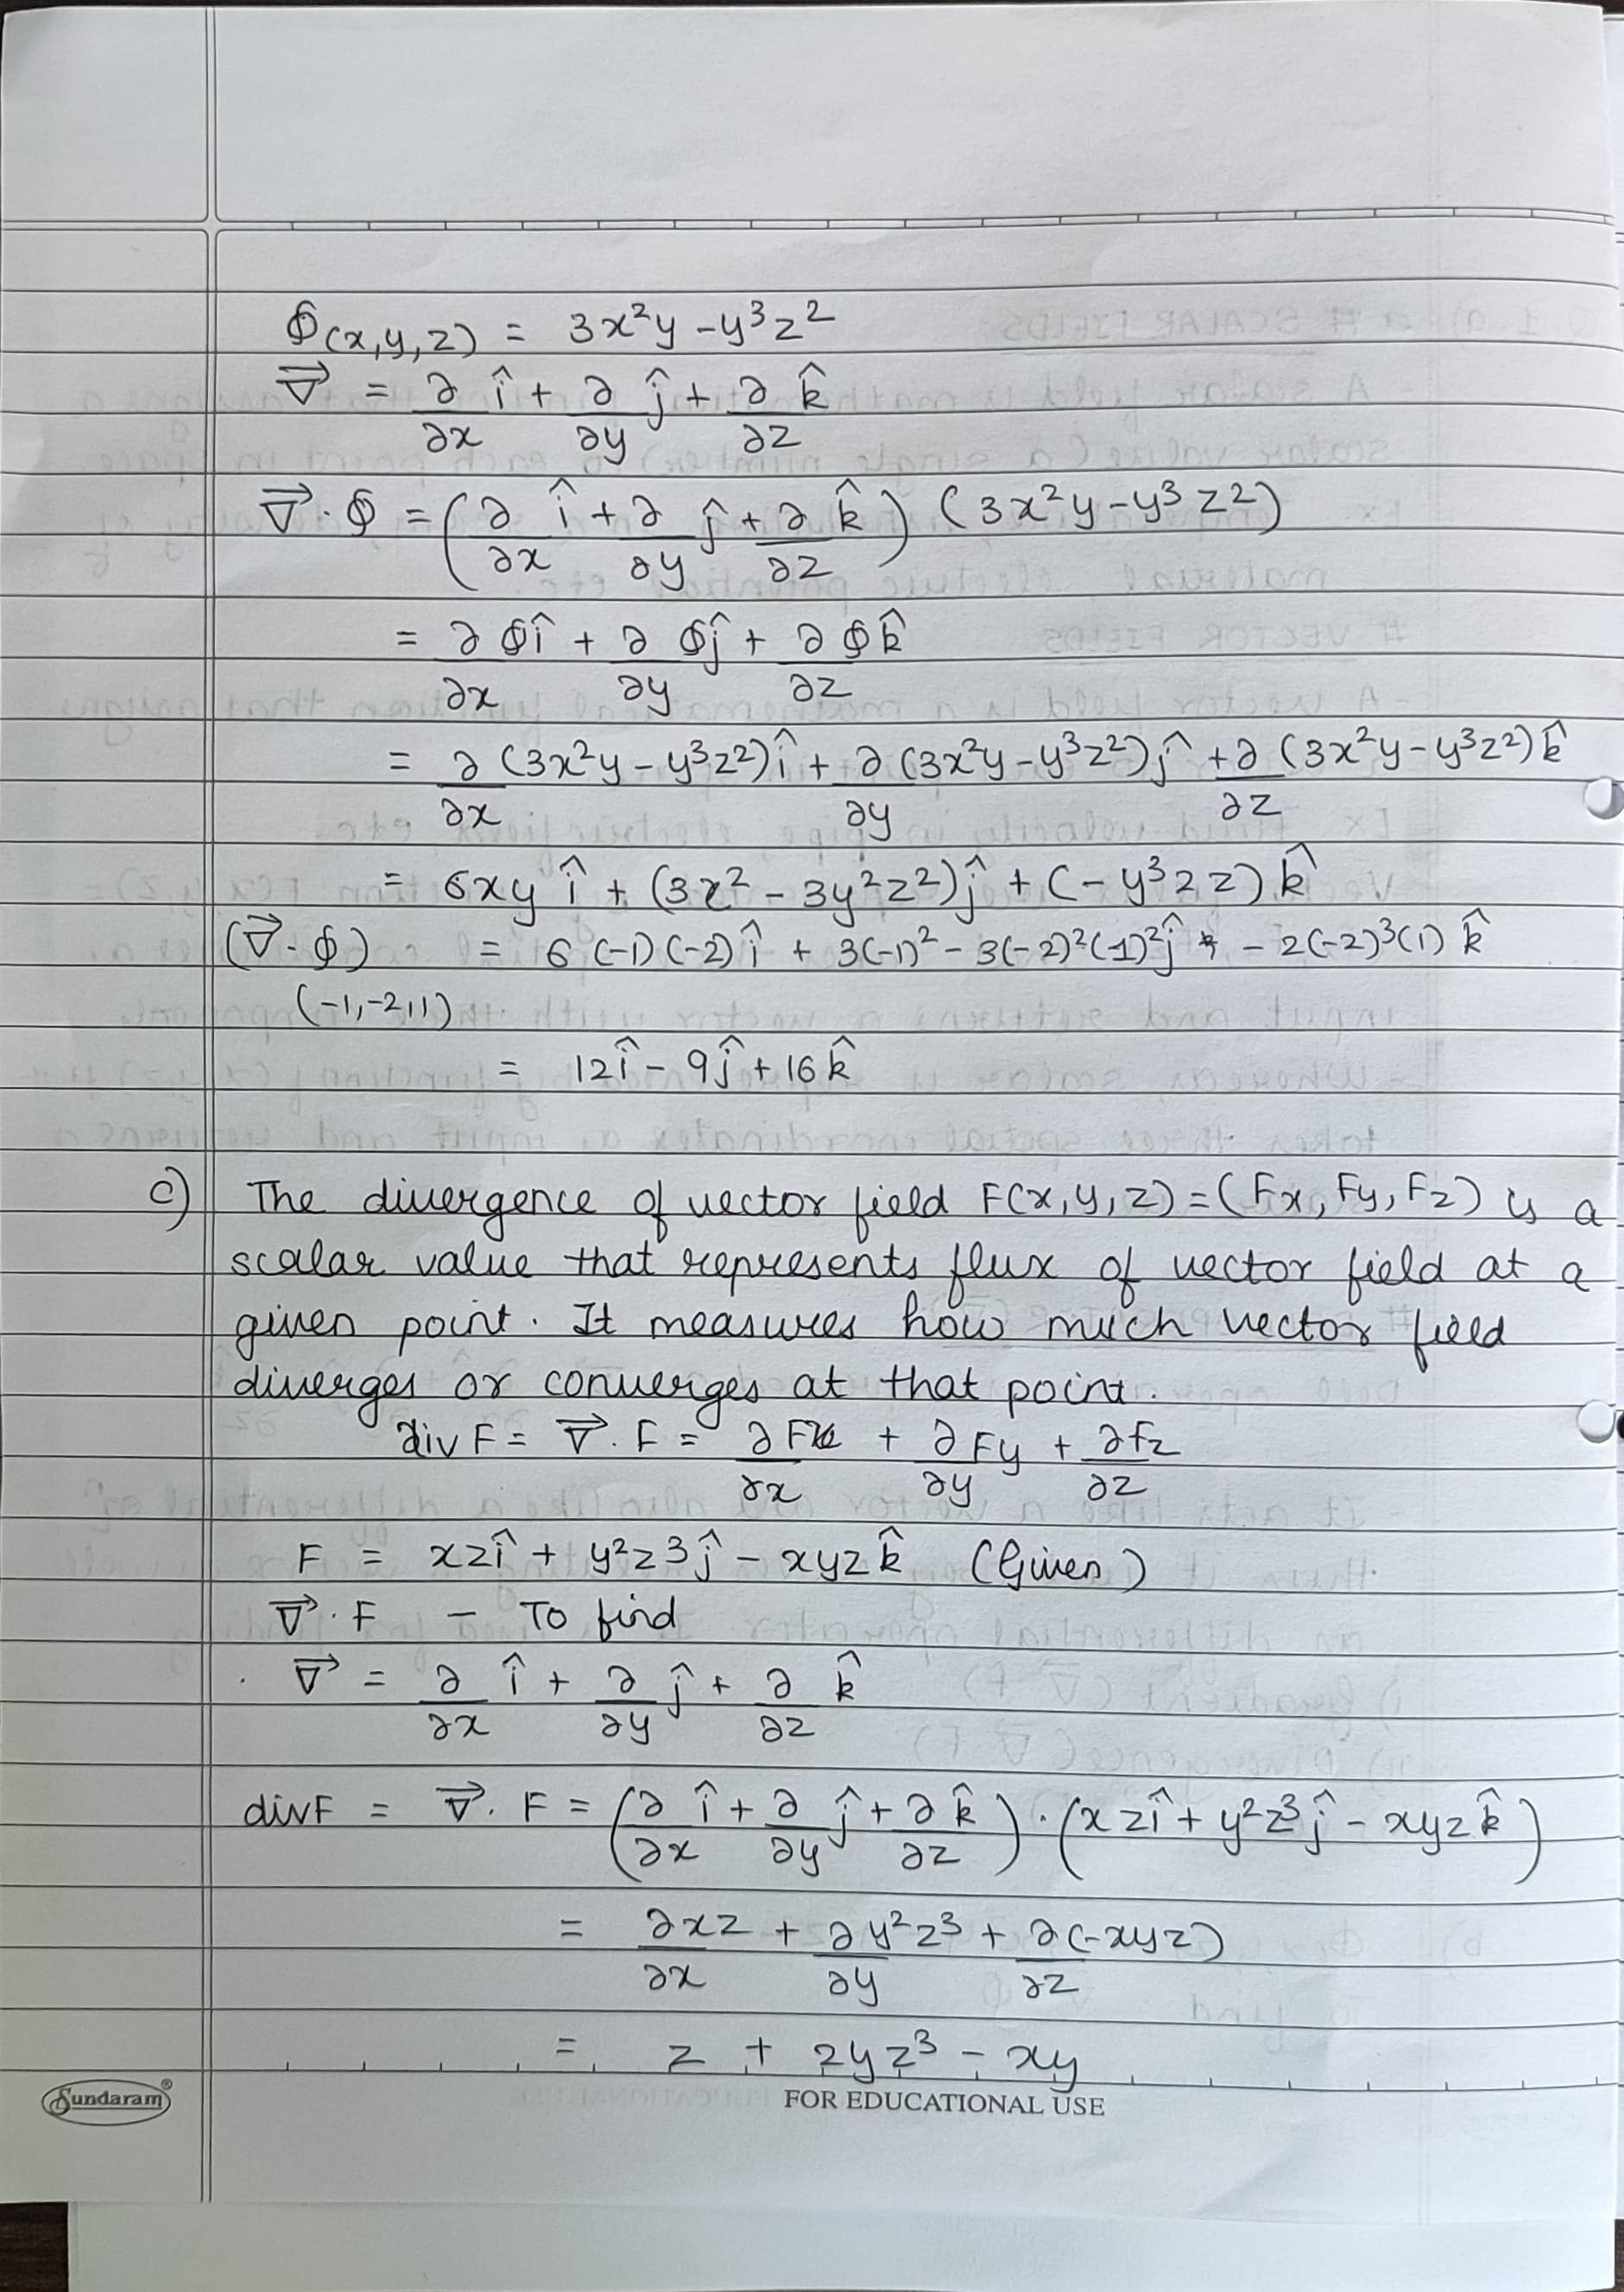 Φ(x,y,z) = 3x²y - y³z²
∇⃗ = ∂/∂x î + ∂/∂y ĵ + ∂/∂z k̂
∇⃗·Φ = (∂/∂x î + ∂/∂y ĵ + ∂/∂z k̂) (3x²y - y³z²)
= ∂/∂x Φî + ∂/∂y Φĵ + ∂/∂z Φk̂
= ∂/∂x (3x²y - y³z²)î + ∂/∂y (3x²y - y³z²)ĵ + ∂/∂z (3x²y - y³z²)k̂
= 6xy î + (3x² - 3y²z²)ĵ + (-y³2z)k̂
(∇⃗·Φ) = 6(-1)(-2)î + 3(-1)² - 3(-2)²(1)²ĵ + - 2(-2)³(1) k̂
(-1,-2,1)
= 12î - 9ĵ + 16k̂
c) The divergence of vector field F(x,y,z) = (Fx, Fy, Fz) is a
scalar value that represents flux of vector field at a
given point. It measures how much vector field
diverges or converges at that point.
div F = ∇⃗. F = ∂Fx/∂x + ∂Fy/∂y + ∂fz/∂z
F = xzî + y²z3ĵ - xyzk̂ (Given)
∇⃗.F - To find
∇⃗ = ∂/∂x î + ∂/∂y ĵ + ∂/∂z k̂
divF = ∇⃗. F = (∂/∂x î + ∂/∂y ĵ + ∂/∂z k̂)·(xzî + y²z³ĵ - xyzk̂)
= ∂xz/∂x + ∂y²z³/∂y + ∂(-xyz)/∂z
= z + 2yz³ - xy
Sundaram® FOR EDUCATIONAL USE